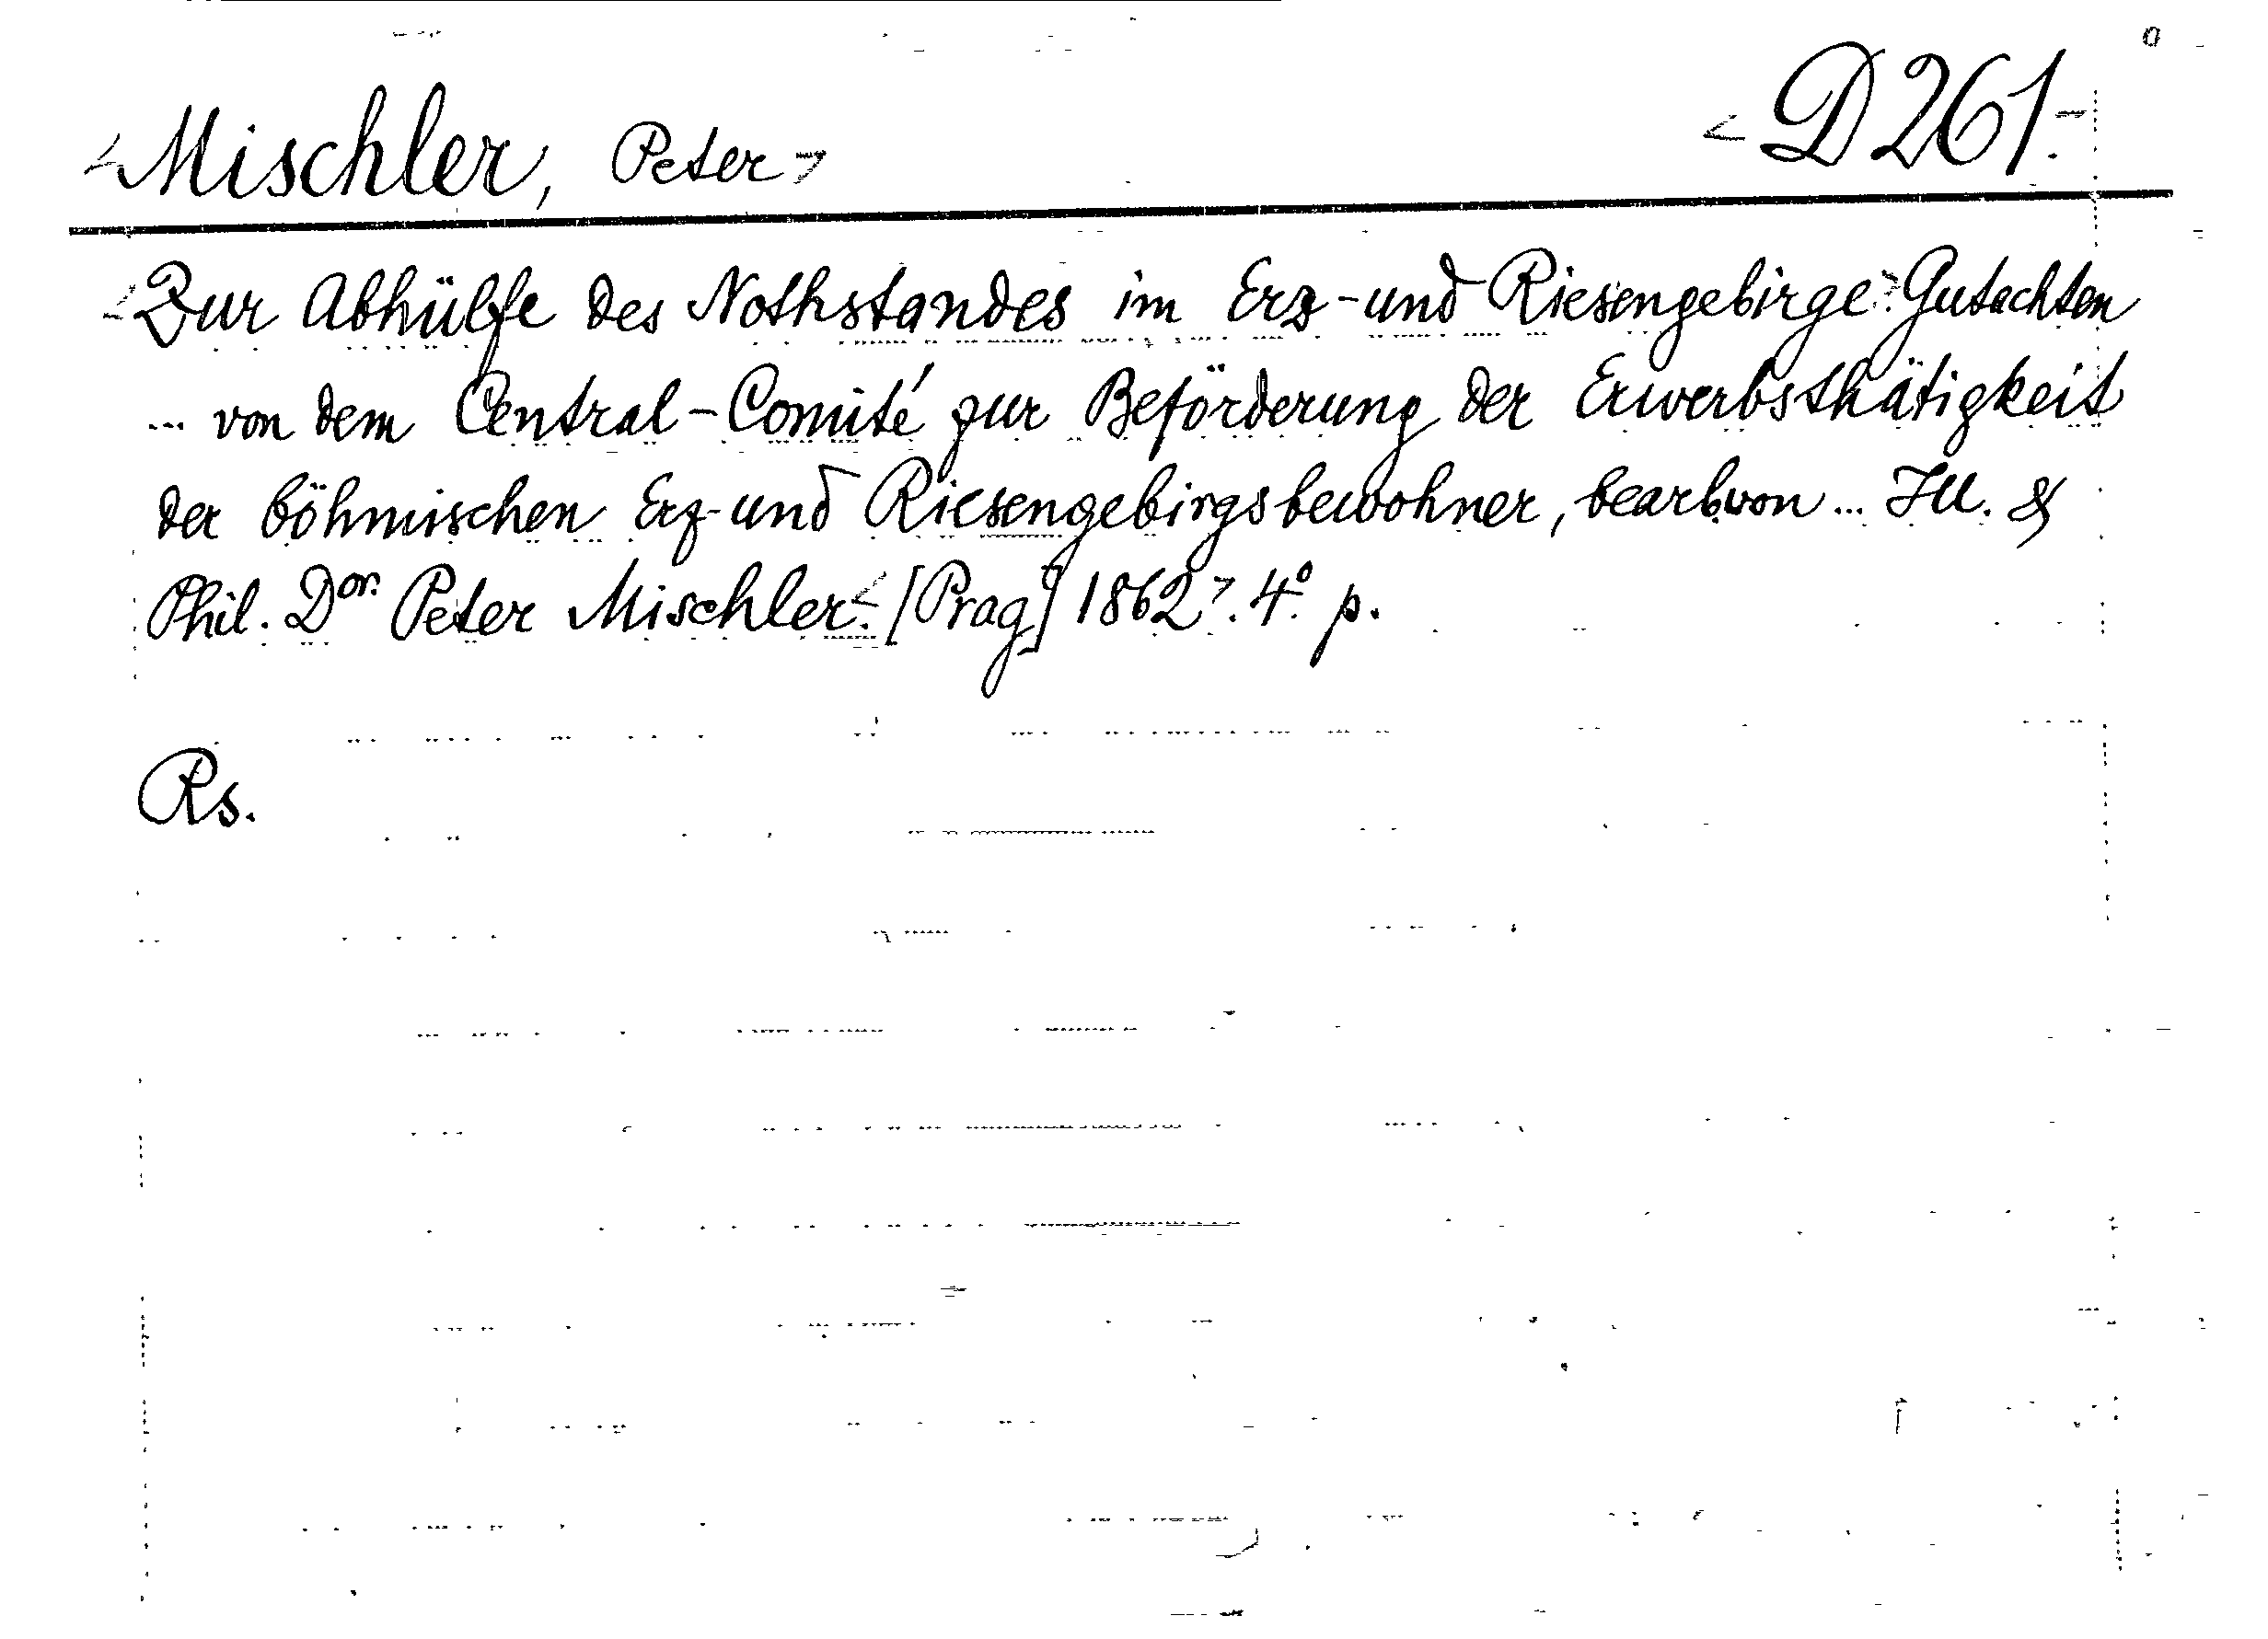 <Mischler, Peter> <D 261.>
<Zur Abhülfe des Nothstandes im Erz- und Riesengebirge.> Gutachten
... von dem Central-Comité zur Beförderung der Erwerbsthätigkeit
der böhmischen Erz- und Riesengebirgsbewohner, bearb. von ... JU. &
Phil. Dor. Peter Mischler. <[Prag] 1862>. 4°. p.
Rs.